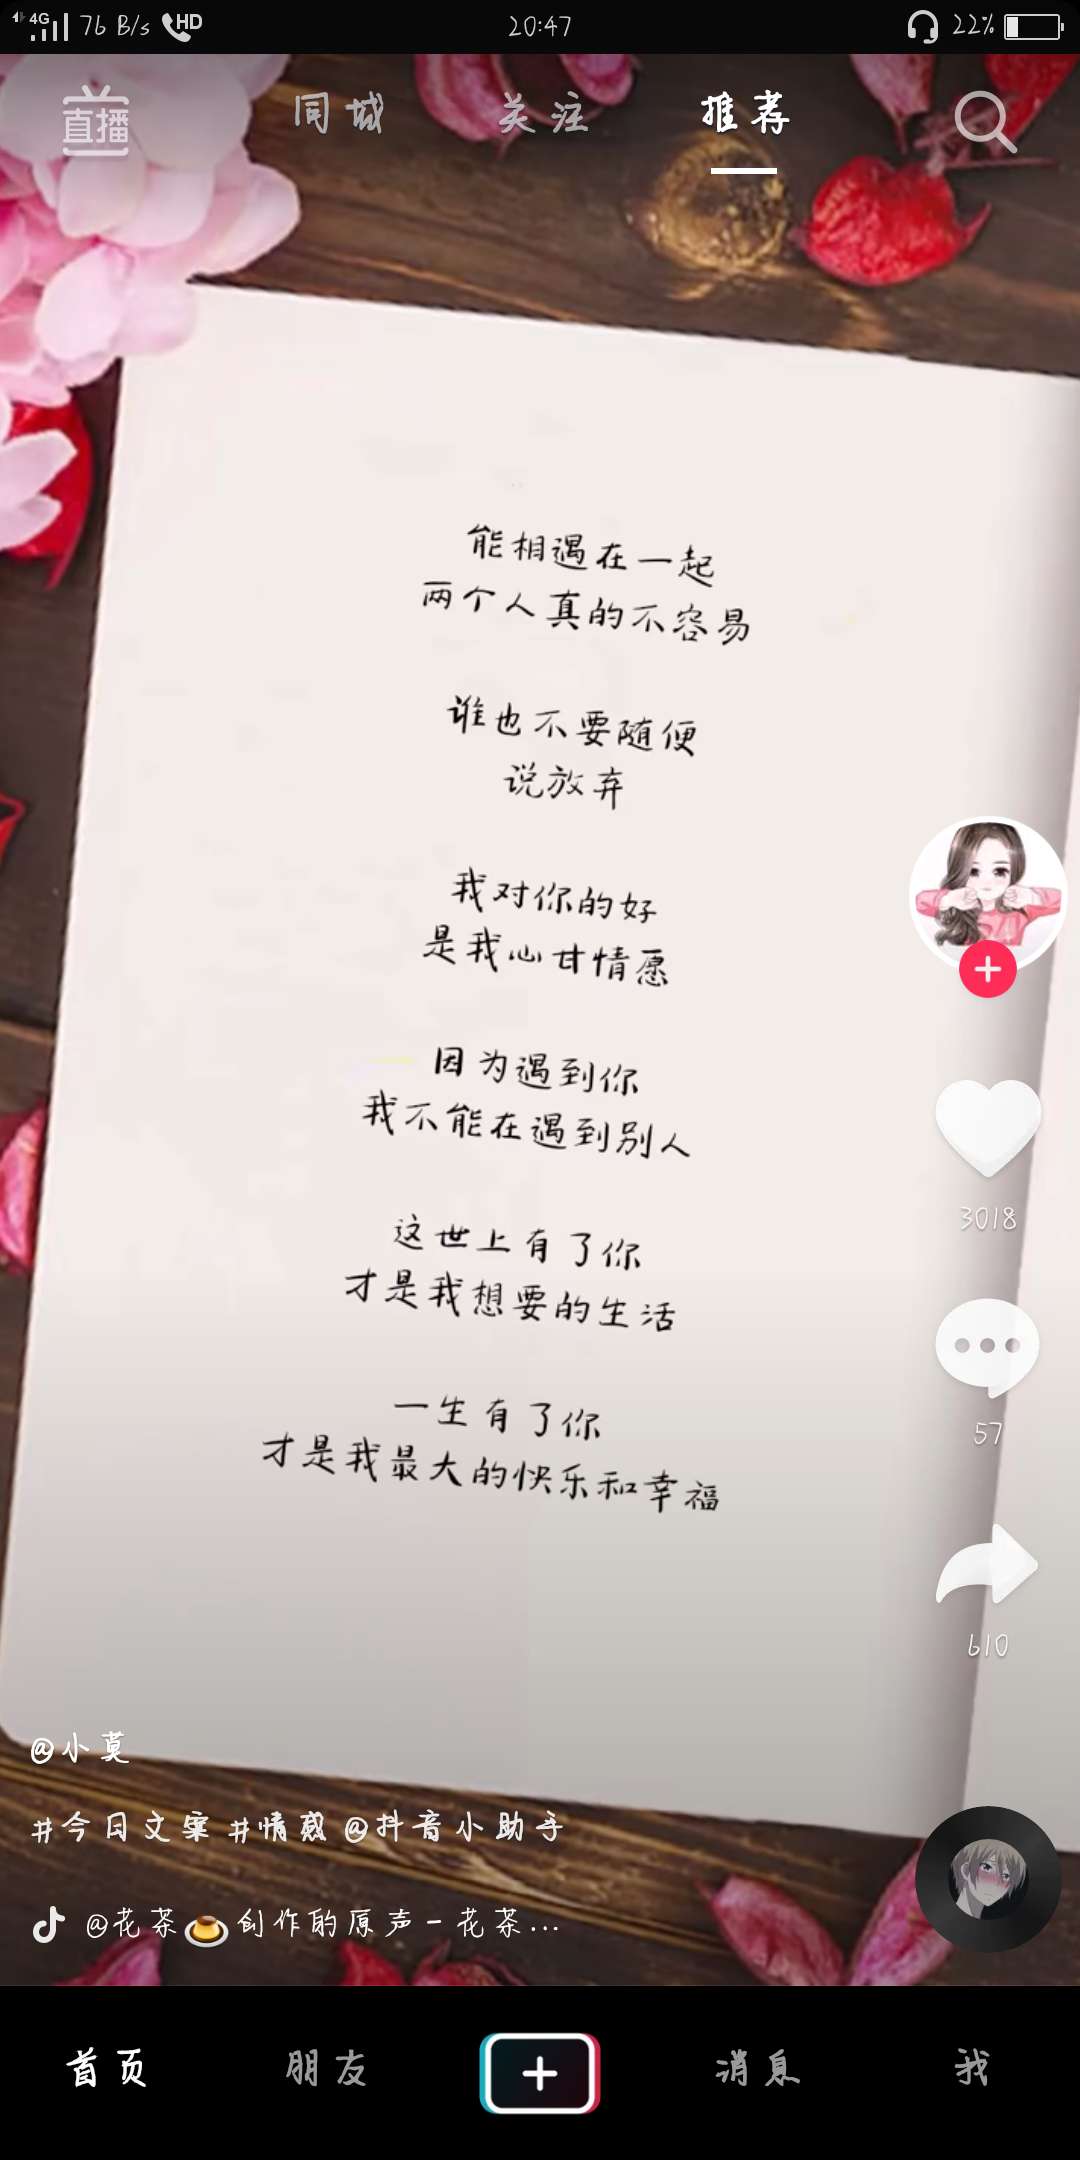 4G 76 B/s HD 20:47 22%
直播 同城 关注 推荐
能相遇在一起
两个人真的不容易
谁也不要随便
说放弃
我对你的好
是我心甘情愿
因为遇到你
我不能在遇到别人
这世上有了你
才是我想要的生活
一生有了你
才是我最大的快乐和幸福
3018
57
610
@小莫
#今日文案 #情感 @抖音小助手
@花茶🍮创作的原声一花茶...
首页 朋友 消息 我